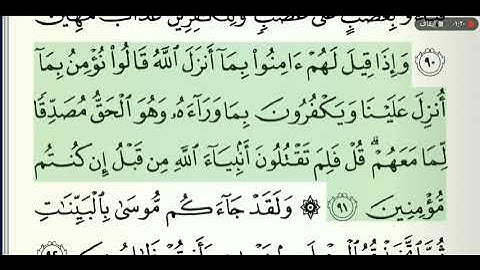 بِغَضَبٍ عَلَىٰ غَضَبٍ وَلِلْكَٰفِرِينَ عَذَابٌ مُّهِينٌ
٩٠ وَإِذَا قِيلَ لَهُمْ ءَامِنُوا۟ بِمَآ أَنزَلَ ٱللَّهُ قَالُوا۟ نُؤْمِنُ بِمَآ
أُنزِلَ عَلَيْنَا وَيَكْفُرُونَ بِمَا وَرَآءَهُۥ وَهُوَ ٱلْحَقُّ مُصَدِّقًا
لِّمَا مَعَهُمْ ۗ قُلْ فَلِمَ تَقْتُلُونَ أَنۢبِيَآءَ ٱللَّهِ مِن قَبْلُ إِن كُنتُم
مُّؤْمِنِينَ ٩١ ۞ وَلَقَدْ جَآءَكُم مُّوسَىٰ بِٱلْبَيِّنَٰتِ